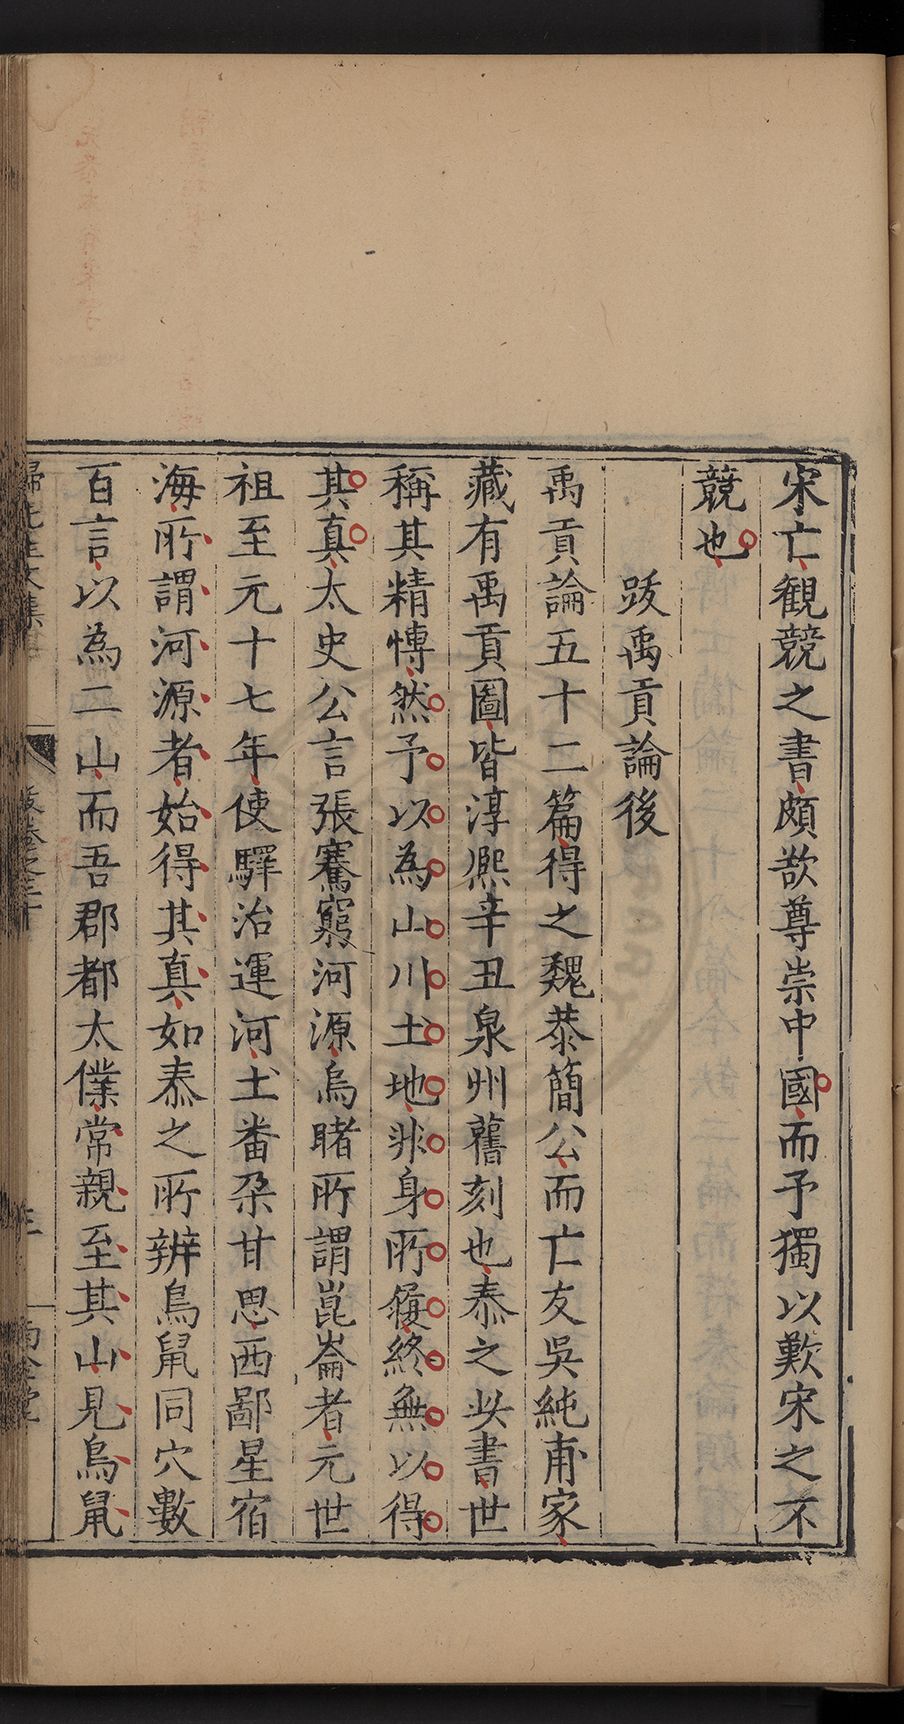 宋亡觀競之書頗欲尊崇中國而予獨以歎宋之不
競也
跋禹貢論後
禹貢論五十二篇得之魏恭簡公而亡友吳純甫家
藏有禹貢圖皆淳熙辛丑泉州舊刻也泰之此書世
稱其精慱然予以為山川土地非身所履終無以得
其真太史公言張騫窮河源烏睹所謂崑崙者元世
祖至元十七年使驛治運河土番朶甘思西鄙星宿
海所謂河源者始得其真如泰之所辨鳥鼠同穴數
百言以為二山而吾郡都太僕常親至其山見鳥鼠